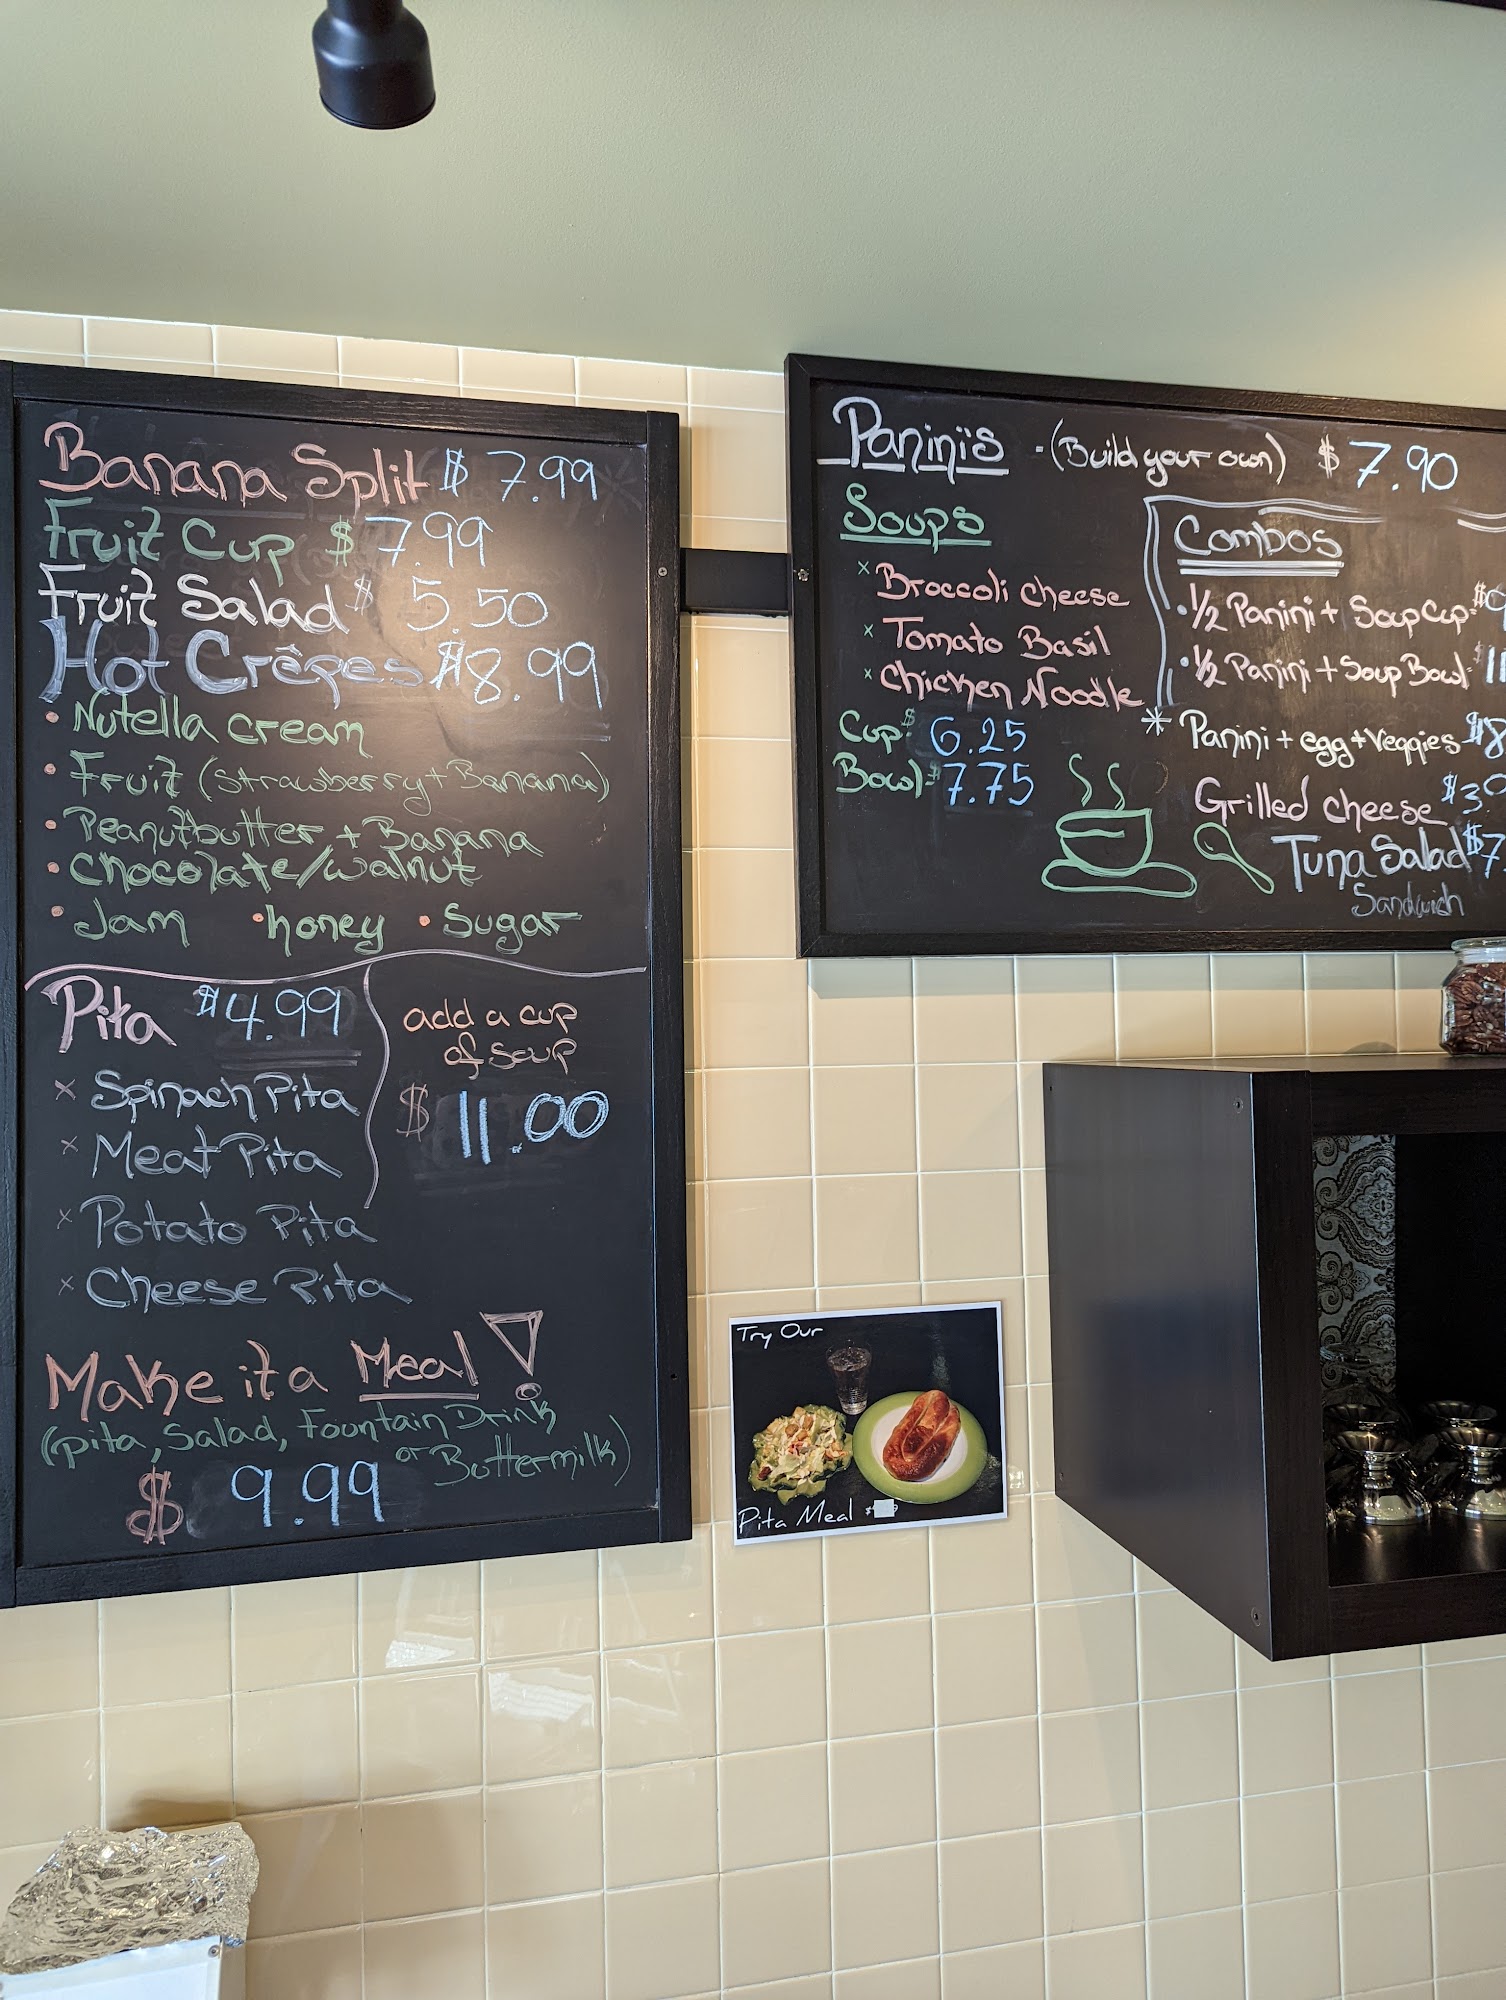 Banana Split $ 7.99
Fruit Cup $ 7.99
Fruit Salad $ 5.50
Hot Crêpes $8.99
• Nutella cream
• Fruit (Strawberry + Banana)
• Peanutbutter + Banana
• Chocolate/walnut
• Jam • honey • Sugar
Pita $4.99
x Spinach Pita
x Meat Pita
x Potato Pita
x Cheese Pita
add a cup
of soup
$ 11.00
Make it a Meal!
(pita, Salad, Fountain Drink
or Buttermilk)
$ 9.99
Panini's - (Build your own) $ 7.90
Soups
x Broccoli cheese
x Tomato Basil
x Chicken Noodle
Cup $ 6.25
Bowl $ 7.75
Combos
• 1/2 Panini + Soup Cup
• 1/2 Panini + Soup Bowl
* Panini + egg + Veggies
Grilled cheese
Tuna Salad
Sandwich
Try Our
Pita Meal